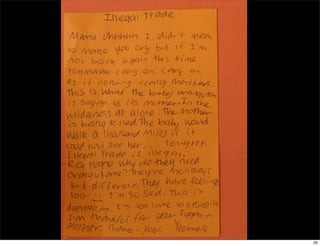 Illegal Trade
Mama ohhhhh. I didn't mean
to make you cry but if I'm
not back again this time
tommorow carry on carry on
as if nothing really matters.
This is what the baby orangutan
is saying to its mother. In the
wilderness all alone. The mother
is being killed. The baby would
walk a thousand miles if it
could just see her... Tonight.
Illegal Trade is illegal.
Rich people why do they need
orangutans? they're monkeys
but different. They have feelings
too... I'm so sad. This is
depressing. I'm too late to
I'm thankful for your
mother. Thank-you.